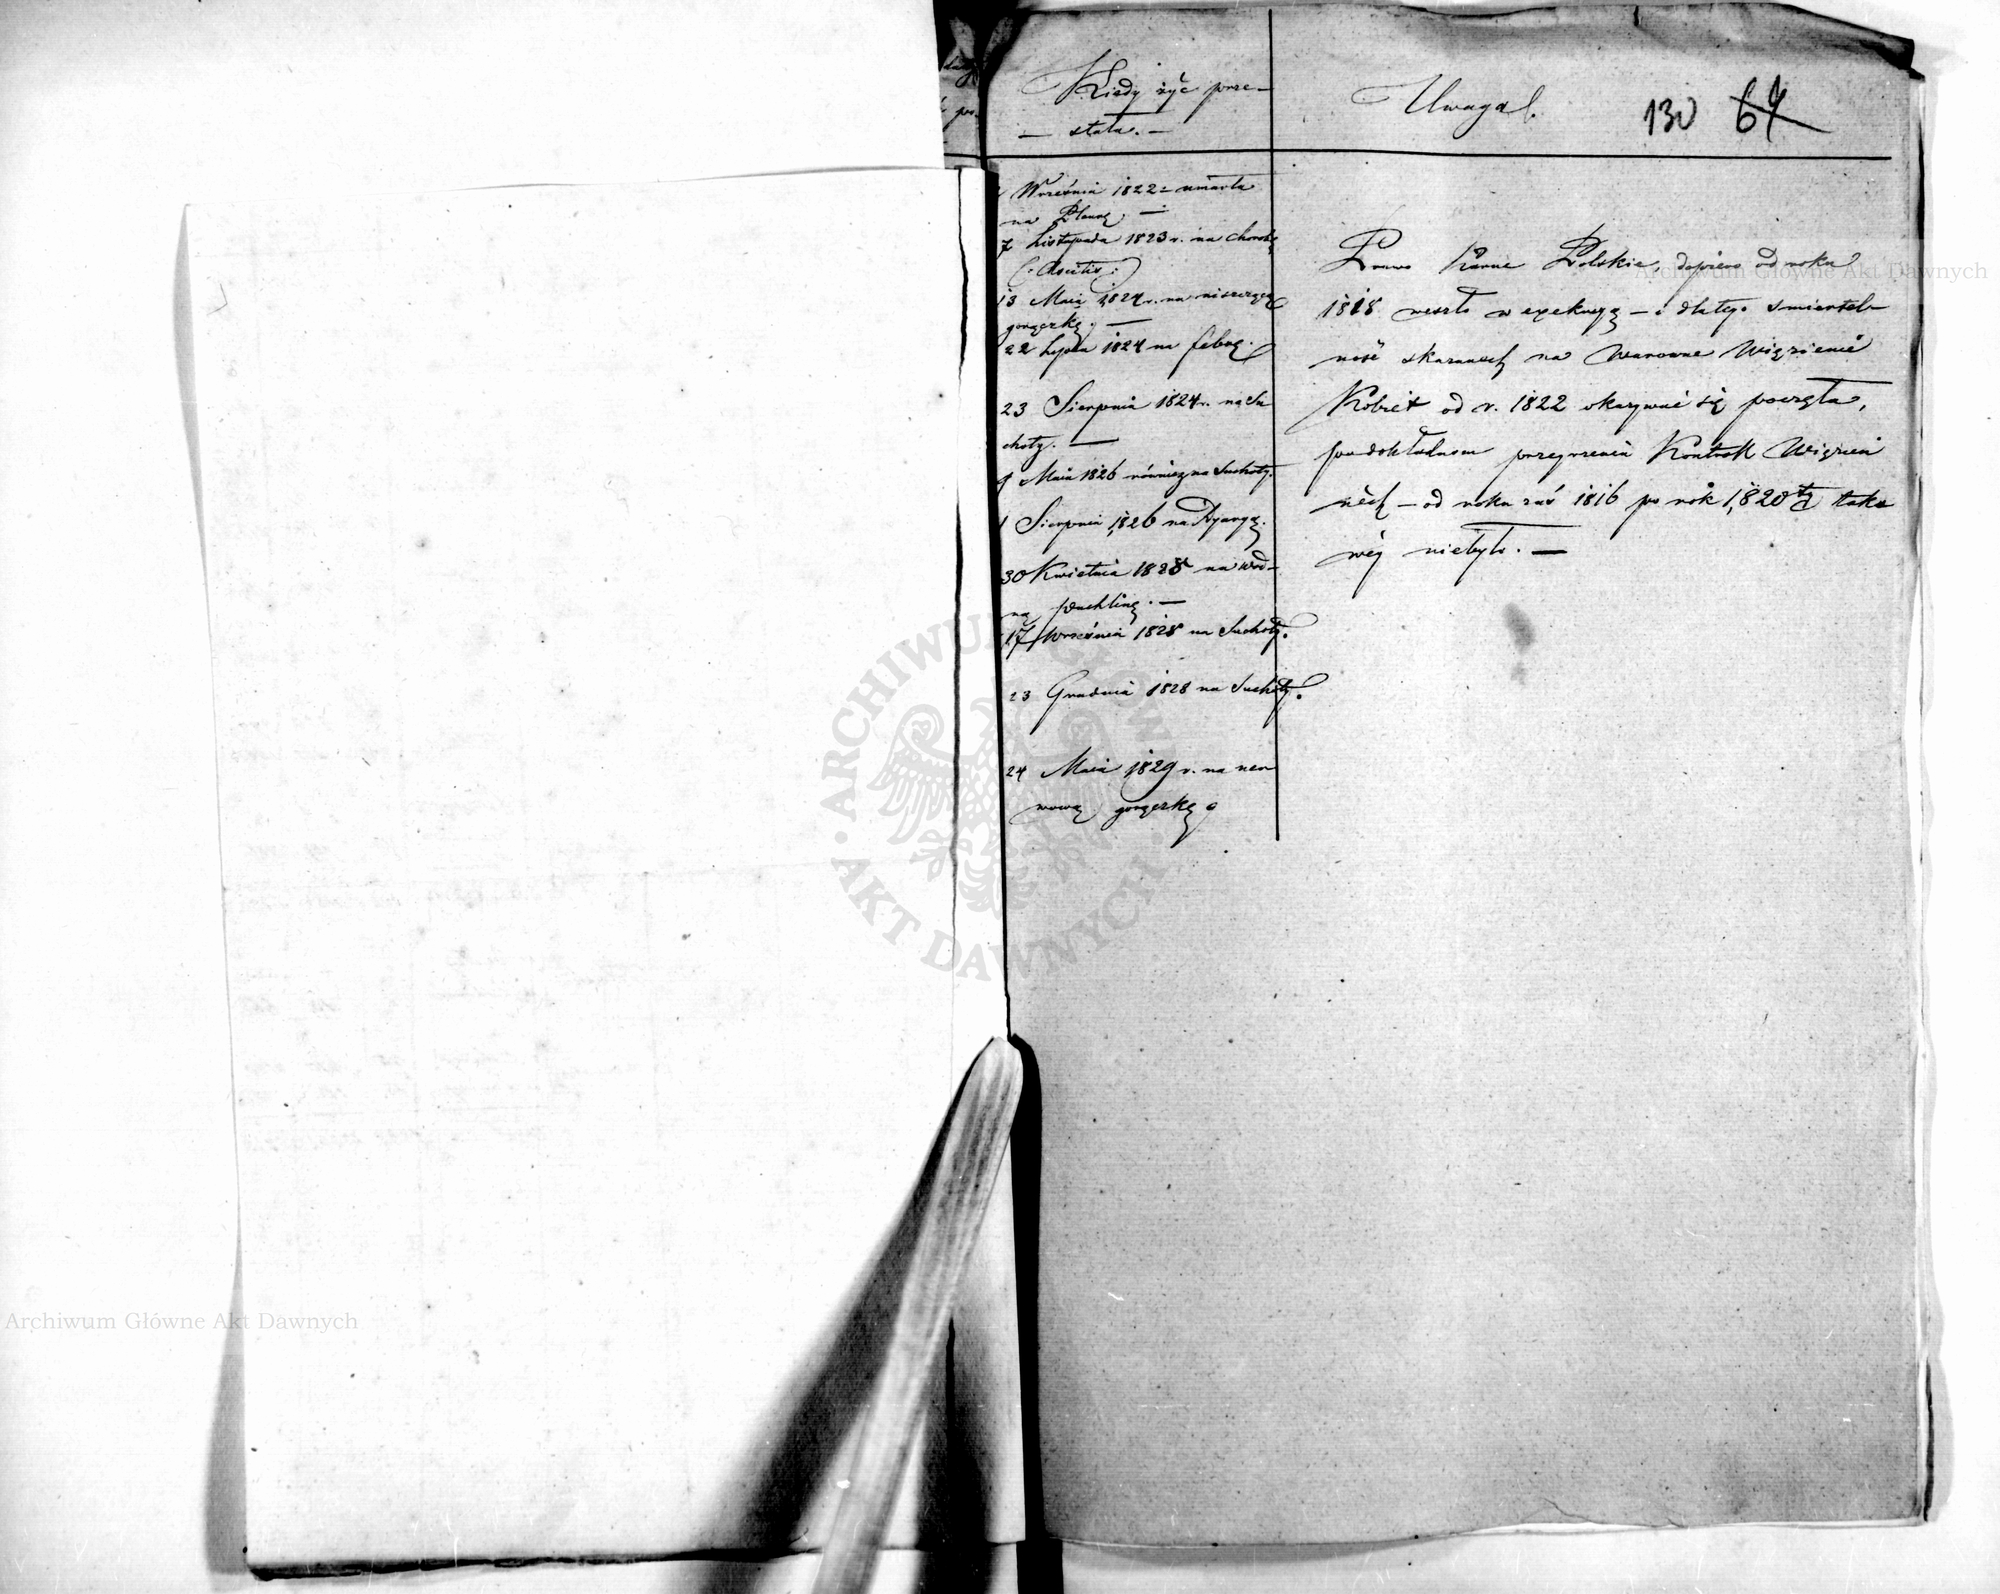 Kiedy żyć prze-
- stała. -
Uwagi.
130 67
Września 1822 umarła
na Pleurę. -
7 Listopada 1823 r. na chorobę
(: Ascitis :)
13 Maia 1824 r. na niszczącą
gorączkę. -
22 Lipca 1824 na febrę.
23 Sierpnia 1824 r. na Su
choty. -
9 Maia 1826 również na Suchoty.
1 Sierpnia 1826 na Dyaryą.
30 Kwietnia 1828 na wod-
ną puchlinę. -
17 Września 1828 na Suchoty.
23 Grudnia 1828 na Suchoty.
24 Maia 1829 r. na ner
wową gorączkę
Prawo Karne Polskie dopiero od roku
1818 weszło w exekucyą - i dla tego smiertel-
ność skazanych na Warowne Więzienie
Kobiet od r. 1822 okazywać się poczęła,
po dokładnem przeyrzeniu Kontrolk Więzien
nych - od roku zaś 1816 po rok 1820ty tako
wey niebyło. -
ARCHIWUM GŁÓWNE AKT DAWNYCH
Archiwum Główne Akt Dawnych
Archiwum Główne Akt Dawnych